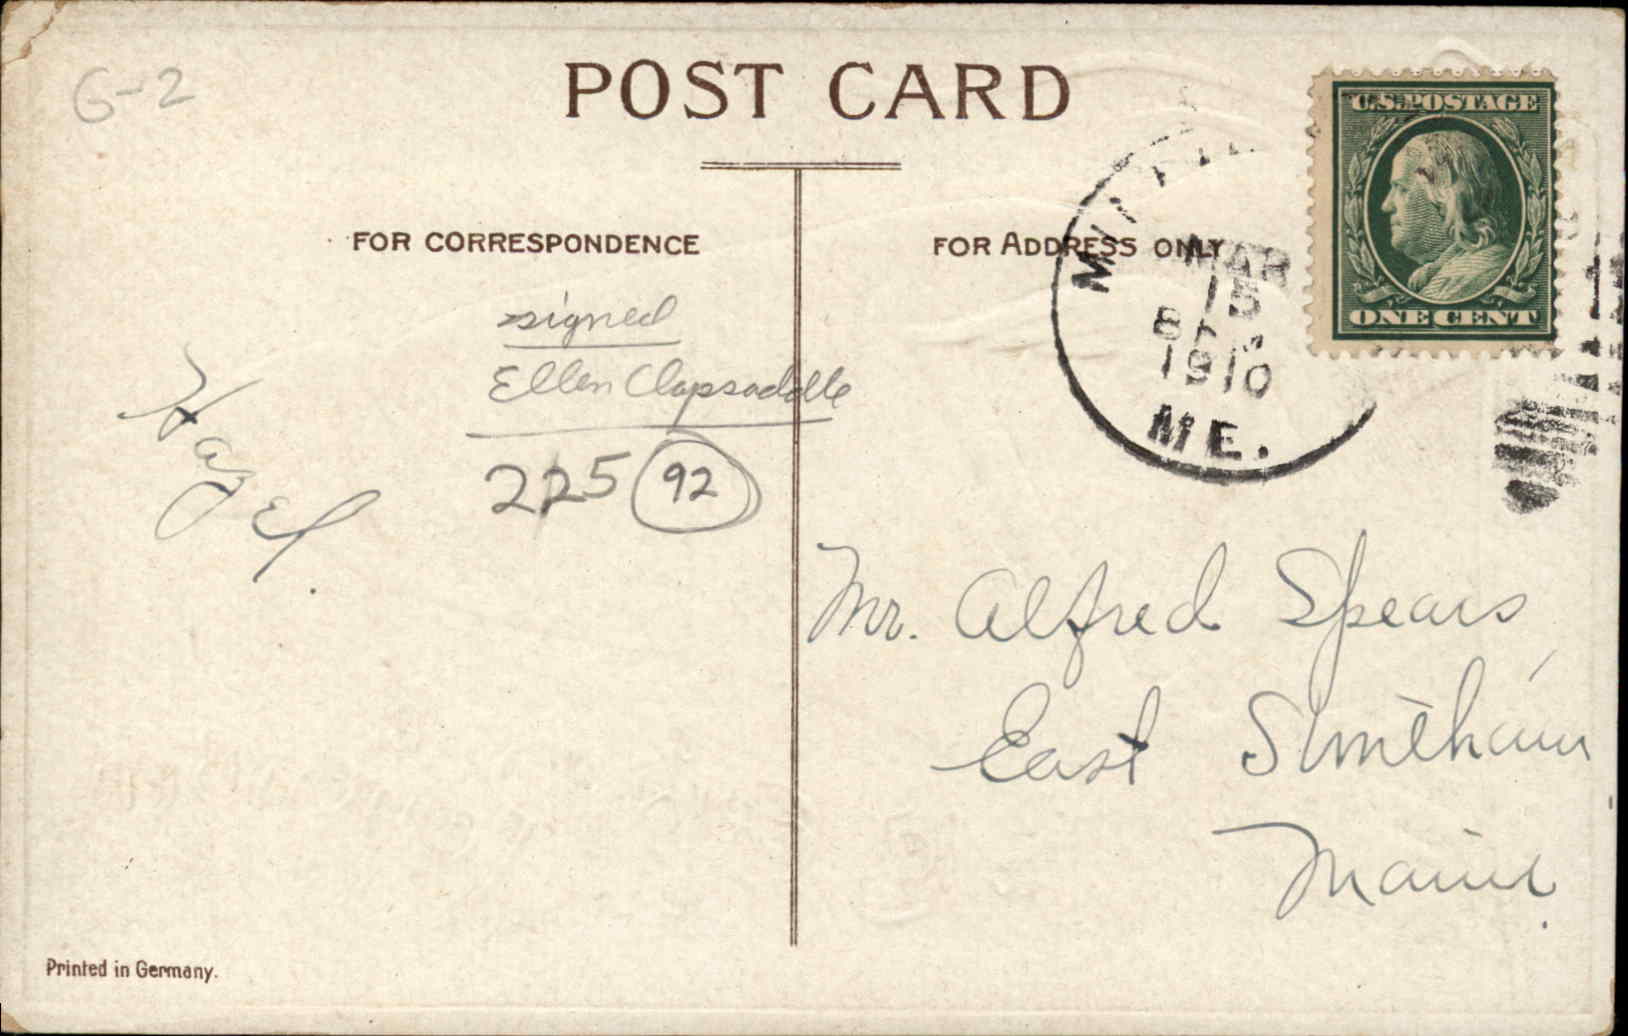 G-2
POST CARD
U.S. POSTAGE
ONE CENT
FOR CORRESPONDENCE
FOR ADDRESS ONLY
MAR
15
8
1910
ME.
signed
Ellen Clapsaddle
225 92
Hazel.
Mr. Alfred Spears,
East
Maine.
Printed in Germany.